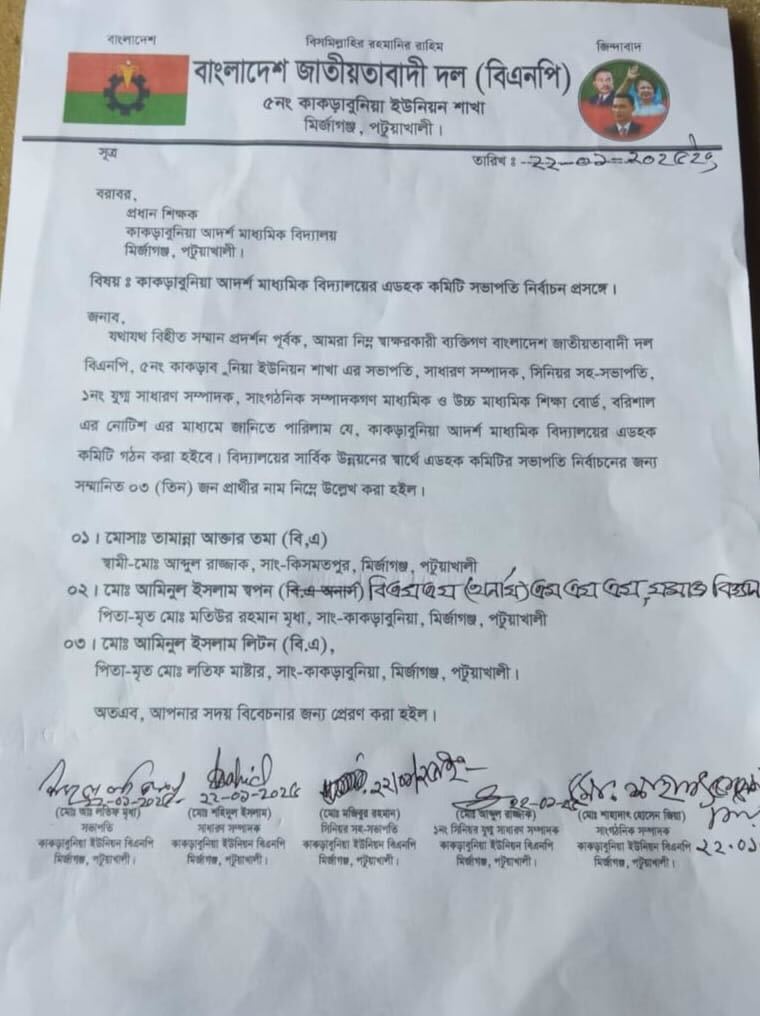 বাংলাদেশ
বিসমিল্লাহির রহমানির রাহিম
জিন্দাবাদ
বাংলাদেশ জাতীয়তাবাদী দল (বিএনপি)
৫নং কাকড়াবুনিয়া ইউনিয়ন শাখা
মির্জাগঞ্জ, পটুয়াখালী।
সূত্র
তারিখ : ২২-০১-২০২৫ইং
বরাবর,
প্রধান শিক্ষক
কাকড়াবুনিয়া আদর্শ মাধ্যমিক বিদ্যালয়
মির্জাগঞ্জ, পটুয়াখালী।
বিষয় : কাকড়াবুনিয়া আদর্শ মাধ্যমিক বিদ্যালয়ের এডহক কমিটি সভাপতি নির্বাচন প্রসঙ্গে।
জনাব,
যথাযথ বিহীত সম্মান প্রদর্শন পূর্বক, আমরা নিম্ন স্বাক্ষরকারী ব্যক্তিগণ বাংলাদেশ জাতীয়তাবাদী দল
বিএনপি, ৫নং কাকড়াব ুনিয়া ইউনিয়ন শাখা এর সভাপতি, সাধারণ সম্পাদক, সিনিয়র সহ-সভাপতি,
১নং যুগ্ম সাধারণ সম্পাদক, সাংগঠনিক সম্পাদকগণ মাধ্যমিক ও উচ্চ মাধ্যমিক শিক্ষা বোর্ড, বরিশাল
এর নোটিশ এর মাধ্যমে জানিতে পারিলাম যে, কাকড়াবুনিয়া আদর্শ মাধ্যমিক বিদ্যালয়ের এডহক
কমিটি গঠন করা হইবে। বিদ্যালয়ের সার্বিক উন্নয়নের স্বার্থে এডহক কমিটির সভাপতি নির্বাচনের জন্য
সম্মানিত ০৩ (তিন) জন প্রার্থীর নাম নিম্নে উল্লেখ করা হইল।
০১। মোসাঃ তামান্না আক্তার তমা (বি,এ)
স্বামী-মোঃ আব্দুল রাজ্জাক, সাং-কিসমতপুর, মির্জাগঞ্জ, পটুয়াখালী
০২। মোঃ আমিনুল ইসলাম স্বপন (বি.এ অনার্স) বিএসএস (অনার্স) এম এস এস, সমাজ বিজ্ঞান
পিতা-মৃত মোঃ মতিউর রহমান মৃধা, সাং-কাকড়াবুনিয়া, মির্জাগঞ্জ, পটুয়াখালী
০৩। মোঃ আমিনুল ইসলাম লিটন (বি.এ),
পিতা-মৃত মোঃ লতিফ মাষ্টার, সাং-কাকড়াবুনিয়া, মির্জাগঞ্জ, পটুয়াখালী।
অতএব, আপনার সদয় বিবেচনার জন্য প্রেরণ করা হইল।
২২-০১-২০২৫ ২২-০১-২০২৫ ২২/০১/২০২৫ইং ২২-০১-২৫
(মোঃ আঃ লতিফ মৃধা) (মোঃ শহিদুল ইসলাম) (মোঃ মজিবুর রহমান) (মোঃ আব্দুল রাজ্জাক) (মোঃ শাহাদাৎ হোসেন জিয়া)
সভাপতি সাধারণ সম্পাদক সিনিয়র সহ-সভাপতি ১নং সিনিয়র যুগ্ম সাধারণ সম্পাদক সাংগঠনিক সম্পাদক
কাকড়াবুনিয়া ইউনিয়ন বিএনপি কাকড়াবুনিয়া ইউনিয়ন বিএনপি কাকড়াবুনিয়া ইউনিয়ন বিএনপি কাকড়াবুনিয়া ইউনিয়ন বিএনপি কাকড়াবুনিয়া ইউনিয়ন বিএনপি ২২.০১
মির্জাগঞ্জ, পটুয়াখালী। মির্জাগঞ্জ, পটুয়াখালী। মির্জাগঞ্জ, পটুয়াখালী। মির্জাগঞ্জ, পটুয়াখালী। মির্জাগঞ্জ, পটুয়াখালী।